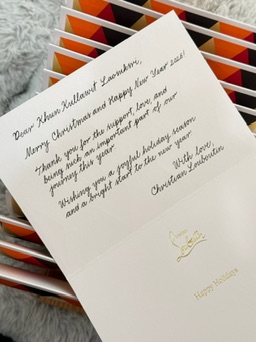 Dear Khun Kullawit Laonksri,
Merry Christmas and Happy New Year 2026!
Thank you for the support, love, and
being such an important part of our
journey this year.
Wishing you a joyful holiday season
and a bright start to the new year
With love,
Christian Louboutin
Happy Holidays